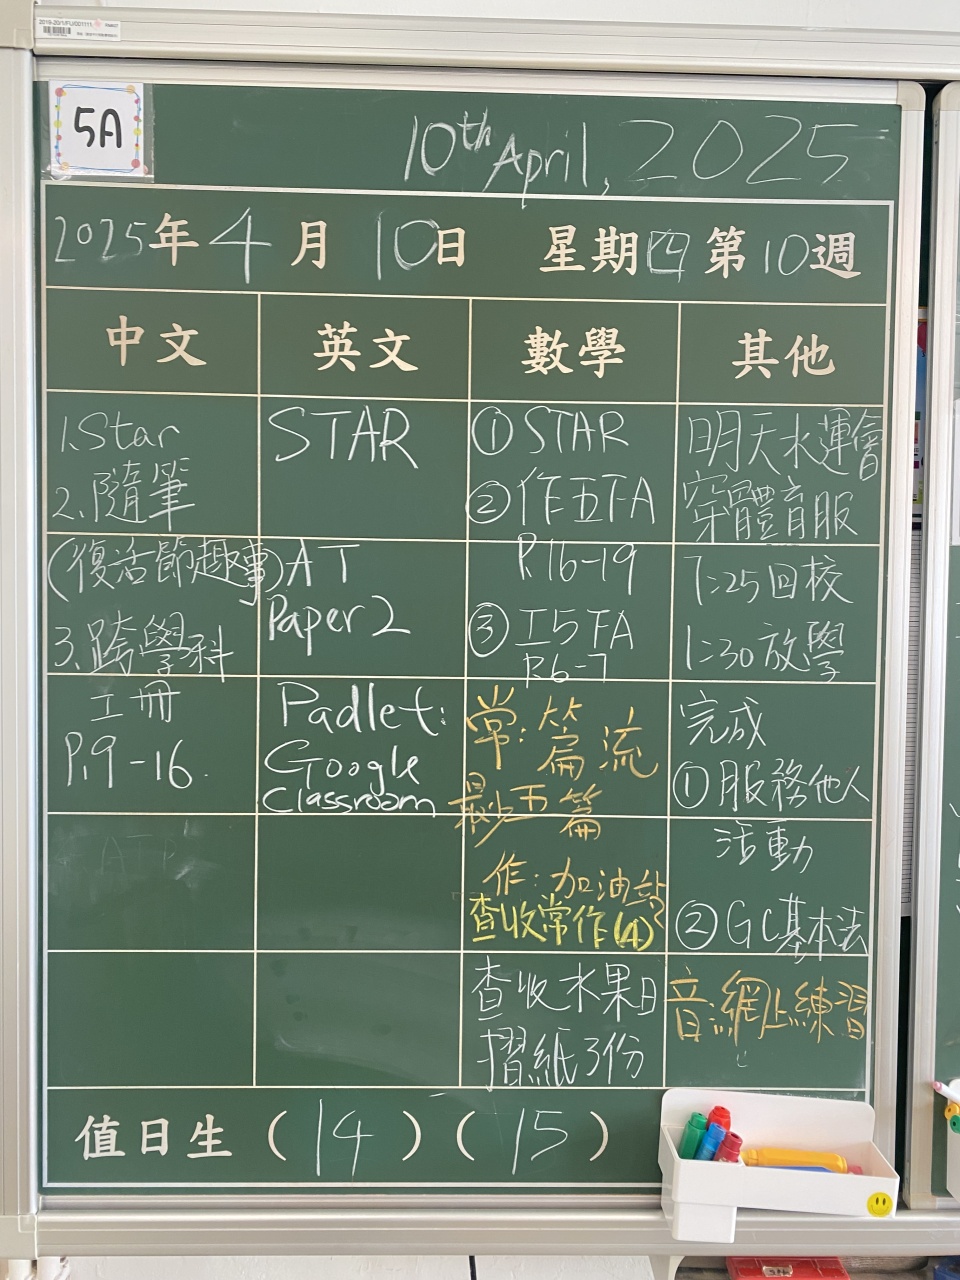 5A
10th April, 2025
2025年4月10日 星期四 第10週
中文
1.Star
2.隨筆
(復活節趣事)
3.跨學科
工冊
P.9-16
英文
STAR
AT
Paper 2
Padlet:
Google
Classroom
數學
① STAR
② 作五下A
P.16-19
③ 工5下A
P.6-7
常:篇流
最少五篇
作:加油站
查收常作(4)
查收水果日
摺紙3份
其他
明天水運會
穿體育服
7:25回校
1:30放學
完成
①服務他人
活動
②GC基本法
音:網上練習
值日生(14)(15)